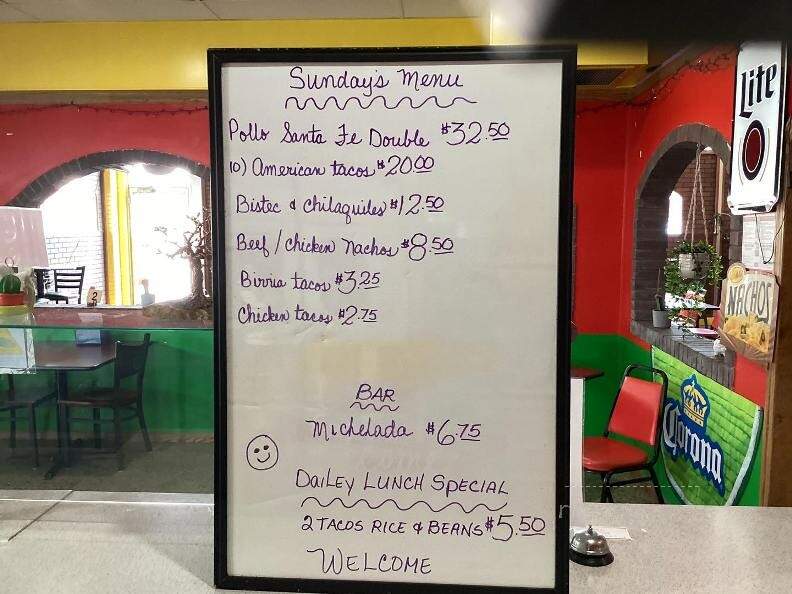 Sunday's Menu
Pollo Santa Fe Double $32.50
10) American tacos $20.00
Bistec & chilaquiles $12.50
Beef/chicken Nachos $8.50
Birria tacos $3.25
Chicken tacos $2.75
BAR
Michelada $6.75
DAILEY LUNCH SPECIAL
2 TACOS RICE & BEANS $5.50
WELCOME
Lite
NACHOS
Corona
2